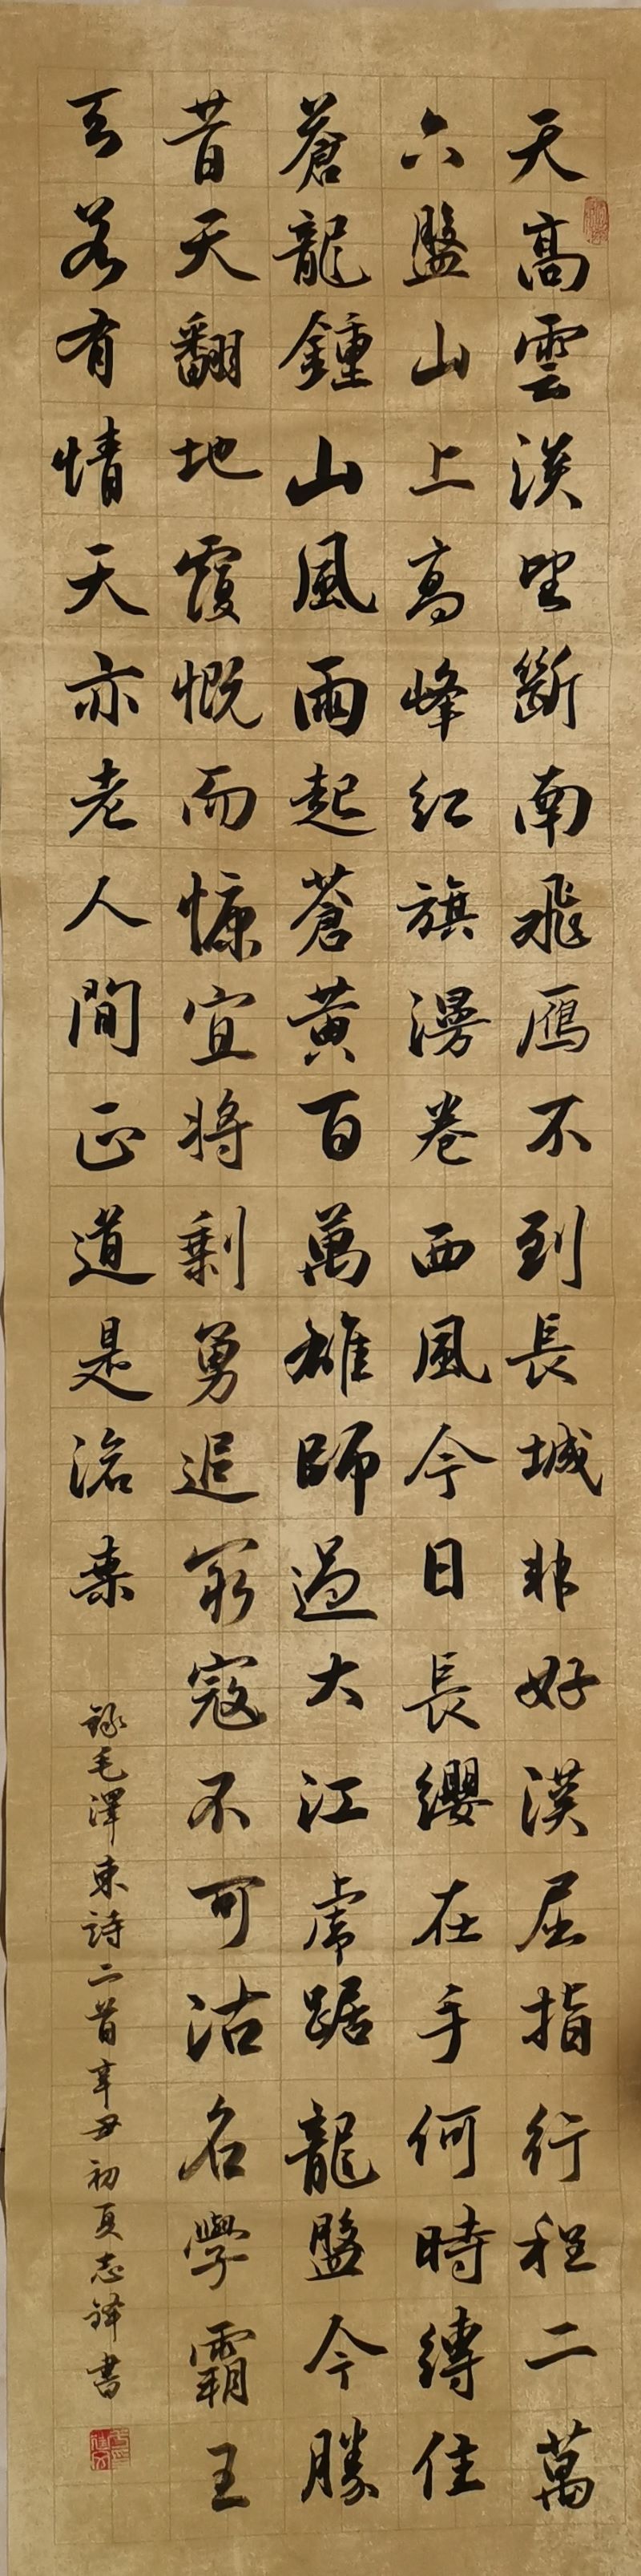 天高雲淡望斷南飛雁不到長城非好漢屈指行程二萬
六盤山上高峰紅旗漫卷西風今日長纓在手何時縛住
蒼龍鍾山風雨起蒼黃百萬雄師過大江虎踞龍盤今勝
昔天翻地覆慨而慷宜將剩勇追窮寇不可沽名學霸王
天若有情天亦老人間正道是滄桑
錄毛澤東詩二首辛丑初夏志鋒書